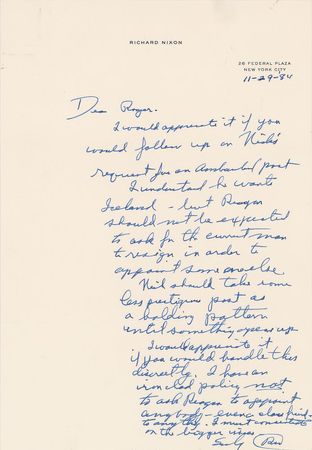 RICHARD NIXON
26 FEDERAL PLAZA
NEW YORK CITY
11-29-84
Dear Roger.
I would appreciate it if you
would follow up on Nick's
request for an Ambassador post
I understand he wants
Iceland - but Reagan
should not be expected
to ask for the current man
to resign in order to
appoint someone else
should take some
less prestigious post as
a holding pattern
until something opens up
I would appreciate it
if you would handle this
discreetly. I have an
ironclad policy not
to ask Reagan to appoint
anybody - even a close friend -
to anything. I must concentrate
on the bigger issues